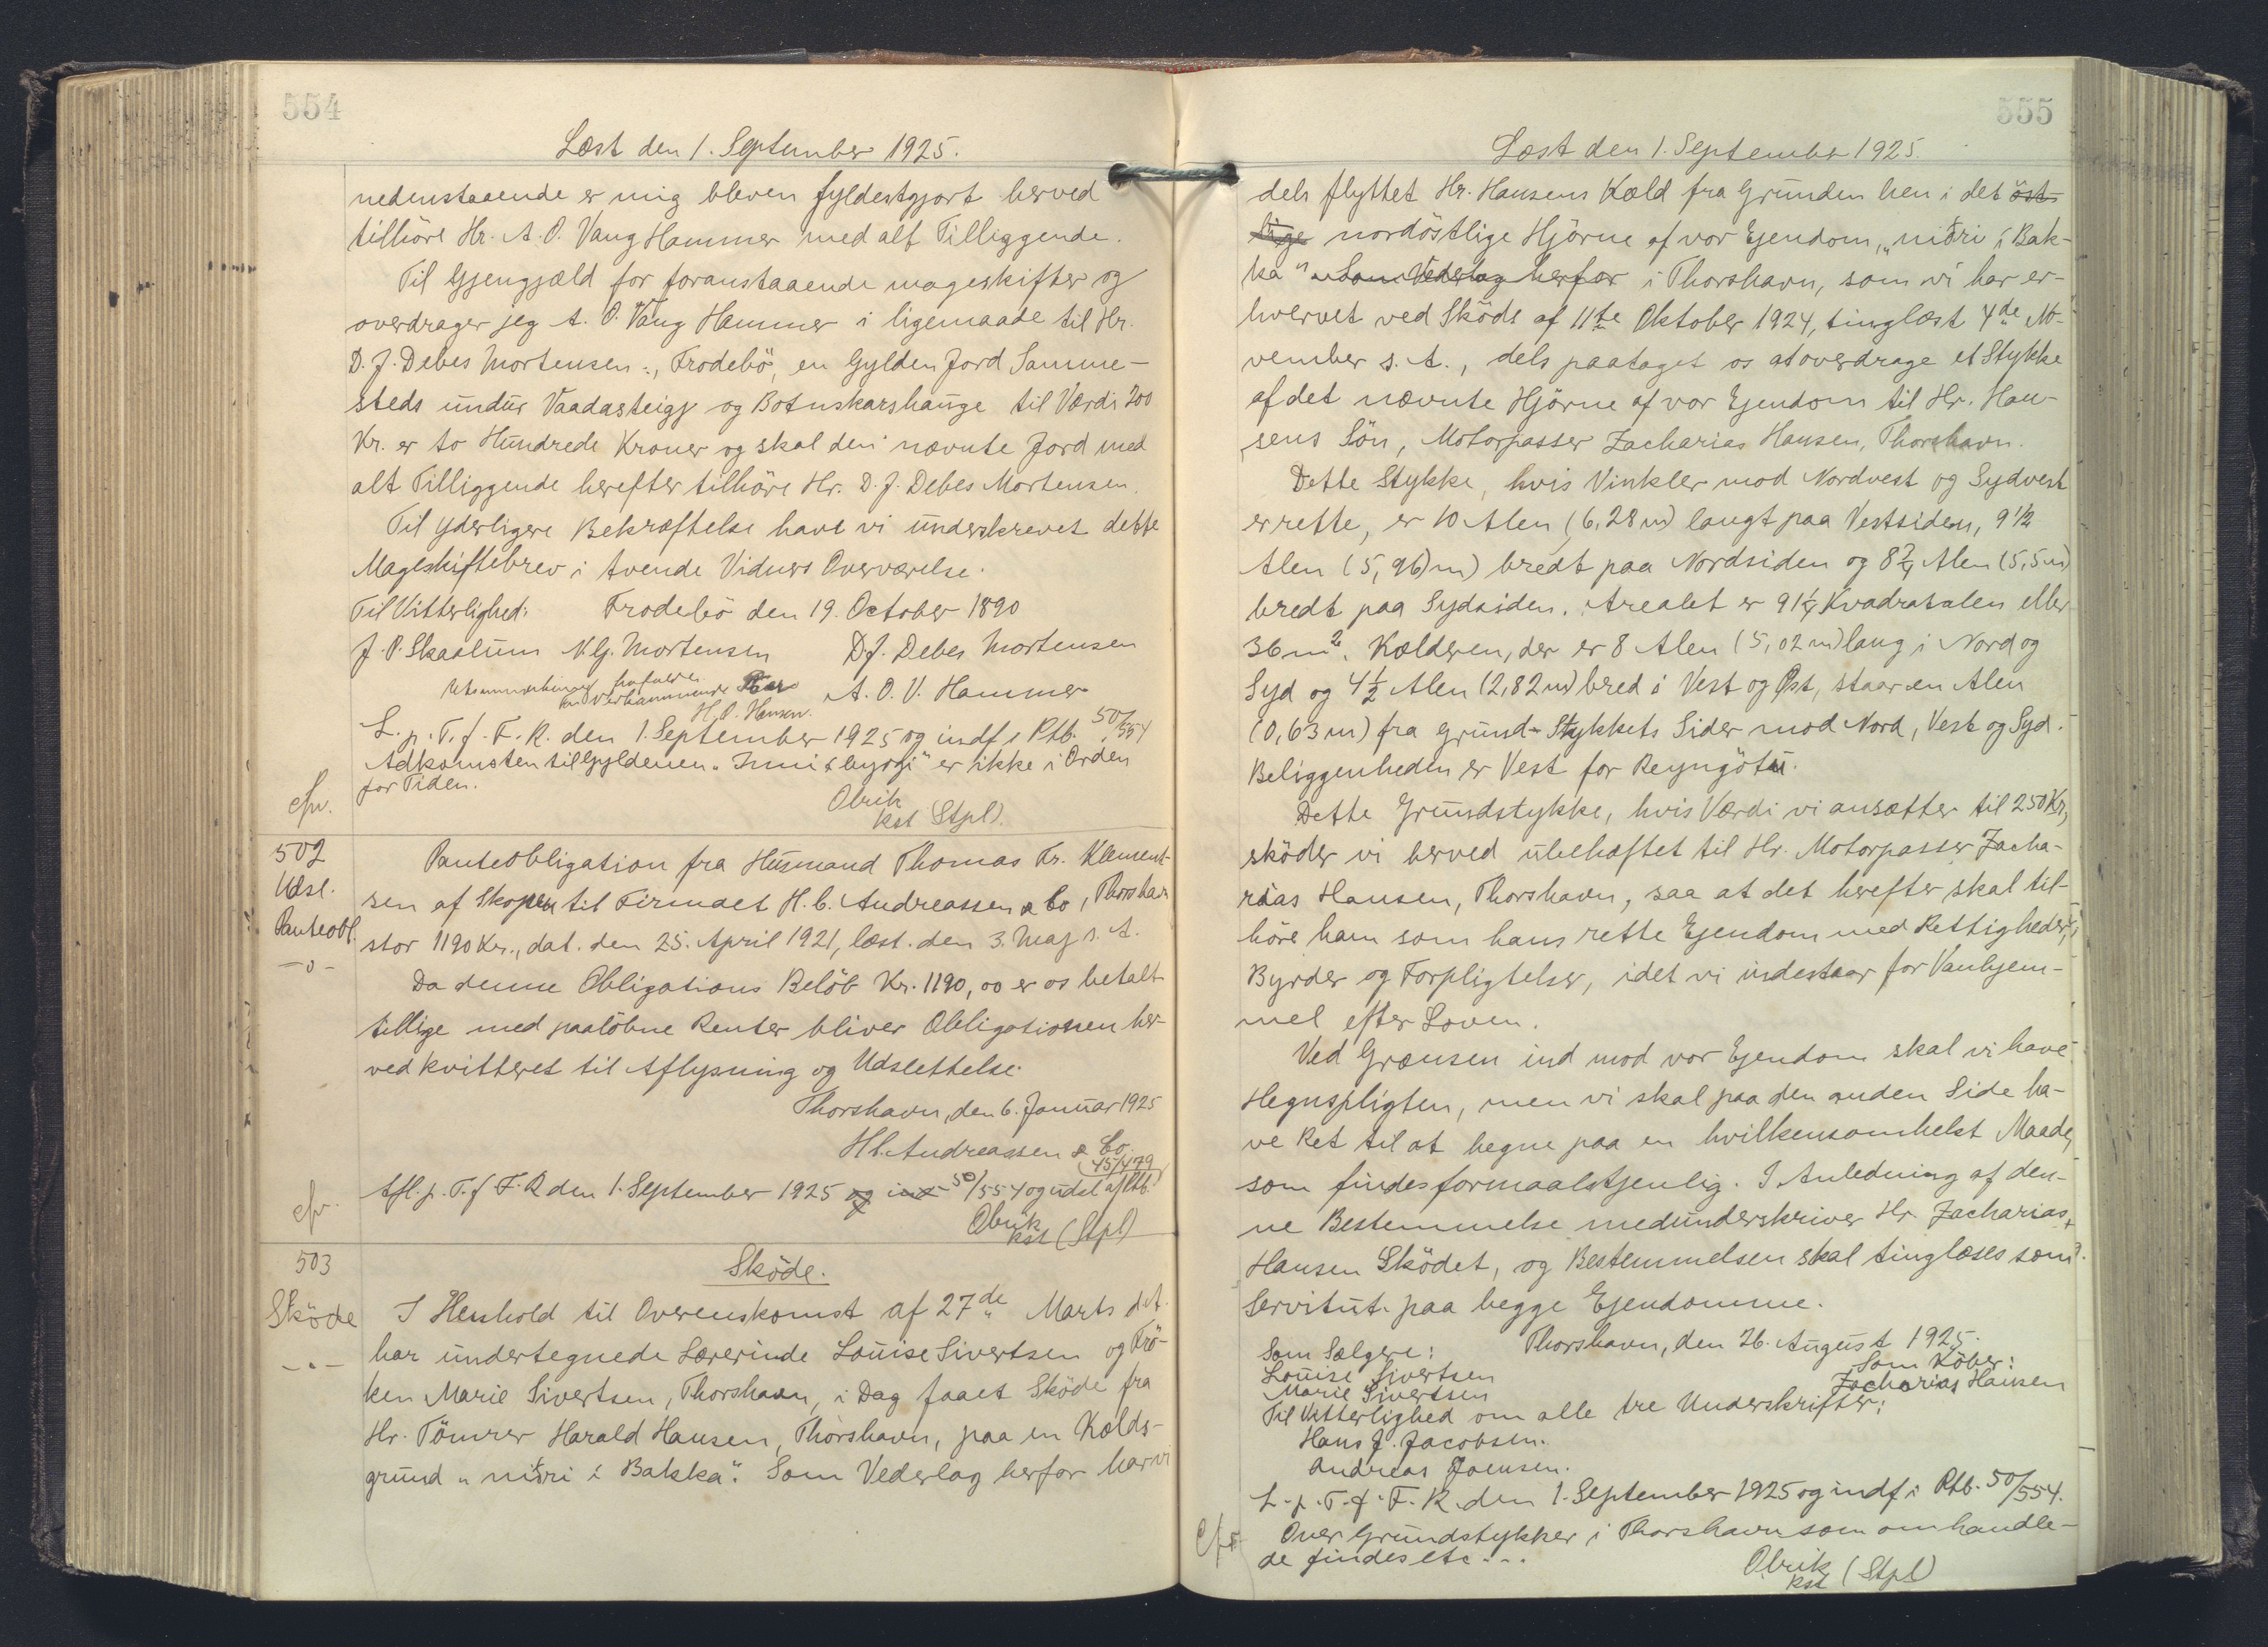 554
Læst den 1. September 1925.
nedenstaaende er mig bleven fyldestgjort herved
tilhöre Hr. A. O. Vang Hammer med alt Tilliggende.
Til Gjengjæld for foranstaaende mageskifter og
overdrager jeg A. O. Vang Hammer i ligemaade til Hr.
D. J. Debes Mortensen, Frodebö, en Gylden Jord Samme-
steds undur Vaadasteigg og Botnskarshauge til Værdi 200
Kr. er to Hundrede Kroner og skal den nævnte Jord med
alt Tilliggende herefter tilhöre Hr. D. J. Debes Mortensen.
Til yderligere Bekræftelse have vi underskrevet dette
Mageskiftebrev i tvende Vidners Overværelse.
Til Vitterlighed: Frodebö den 19. October 1890
J. P. Skaalum N. G. Mortensen D. J. Debes Mortensen
A. O. V. Hammer
H. O. Hansen.
L. p. T. f. F. R. den 1. September 1925 og indf i Ptb. 50/554
Adkomsten til Gyldenen "Inni i byrgi" er ikke i Orden
for Tiden.
Obrik
kst (Stpl).
cfr.
502
Udsl.
Panteobl.
-o-
Panteobligation fra Husmand Thomas Fr. Klement-
sen af Skopen til Firmaet H. C. Andreassen & Co, Thorshavn
stor 1190 Kr., dat. den 25. April 1921, læst. den 3. Maj s. A.
Da denne Obligations Belöb Kr. 1190,00 er os betalt
tillige med paalöbne Renter bliver Obligationen her-
ved kvitteret til Aflysning og Udslettelse.
Thorshavn, den 6. Januar 1925
H. C. Andreassen & Co.
45/479
Afl. p. T. f F. R den 1. September 1925 og ind 50/554 og udsl af Ptb.
Obrik
kst (Stpl)
cfr.
503
Sköde
-o-
Sköde.
I Henhold til Overenskomst af 27de Marts d. A.
har undertegnede Lærerinde Louise Sivertsen og Frö-
ken Marie Sivertsen, Thorshavn, i Dag faaet Sköde fra
Hr. Tömrer Harald Hansen, Thorshavn, paa en Kælds-
grund "niðri í Bakka". Som Vederlag herfor har vi
555
Læst den 1. September 1925.
dels flyttet Hr. Hansens Kæld fra Grunden hen i det öst-
lige nordöstlige Hjörne af vor Ejendom, "niðri í Bak-
ka" Som Vederlag herfor i Thorshavn, som vi har er-
hvervet ved Sköde af 11te Oktober 1924, tinglæst 4de No-
vember s. A., dels paataget os at overdrage et Stykke
af det nævnte Hjörne af vor Ejendom til Hr. Han-
sens Sön, Motorpasser Zacharias Hansen, Thorshavn.
Dette Stykke, hvis Vinkler mod Nordvest og Sydvest
er rette, er 10 Alen (6,28 m) langt paa Vestsiden, 9 1/2
Alen (5,96) m) bredt paa Nordsiden og 8 3/4 Alen (5,5 m)
bredt paa Sydsiden. Arealet er 91 1/4 Kvadratalen eller
36 m2. Kælderen, der er 8 Alen (5,02 m) lang i Nord og
Syd og 4 1/2 Alen (2,82 m) bred i Vest og Øst, staar en Alen
(0,63 m) fra Grund-Stykkets Sider mod Nord, Vest og Syd.
Beliggenheden er Vest for Reyngötu.
Dette Grundstykke, hvis Værdi vi ansætter til 250 Kr,
sköder vi herved ubehæftet til Hr. Motorpasser Zacha-
rias Hansen, Thorshavn, saa at det herefter skal til-
höre ham som hans rette Ejendom med Rettigheder,
Byrder og Forpligtelser, idet vi indestaar for Vanhjem-
mel efter Loven.
Ved Grænsen ind mod vor Ejendom skal vi have
Hegnspligten, men vi skal paa den anden Side ha-
ve Ret til at hegne paa en hvilkensomhelst Maade,
som findes formaalstjenlig. I Anledning af den-
ne Bestemmelse medunderskriver Hr. Zacharias
Hansen Sködet, og Bestemmelsen skal tinglæses som
Servitut paa begge Ejendomme.
Thorshavn, den 26. August 1925.
Som Sælgere: Som Köber:
Louise Sivertsen
Marie Sivertsen Zacharias Hansen
Til Vitterlighed om alle tre Underskrifter:
Hans J. Jacobsen.
Andreas Joensen.
L. p. T. f. F. R. den 1. September 1925 og indf i Ptb. 50/554.
cfr
Over Grundstykker i Thorshavn som omhandle-
de findes etc...
Obrik
kst (Stpl)